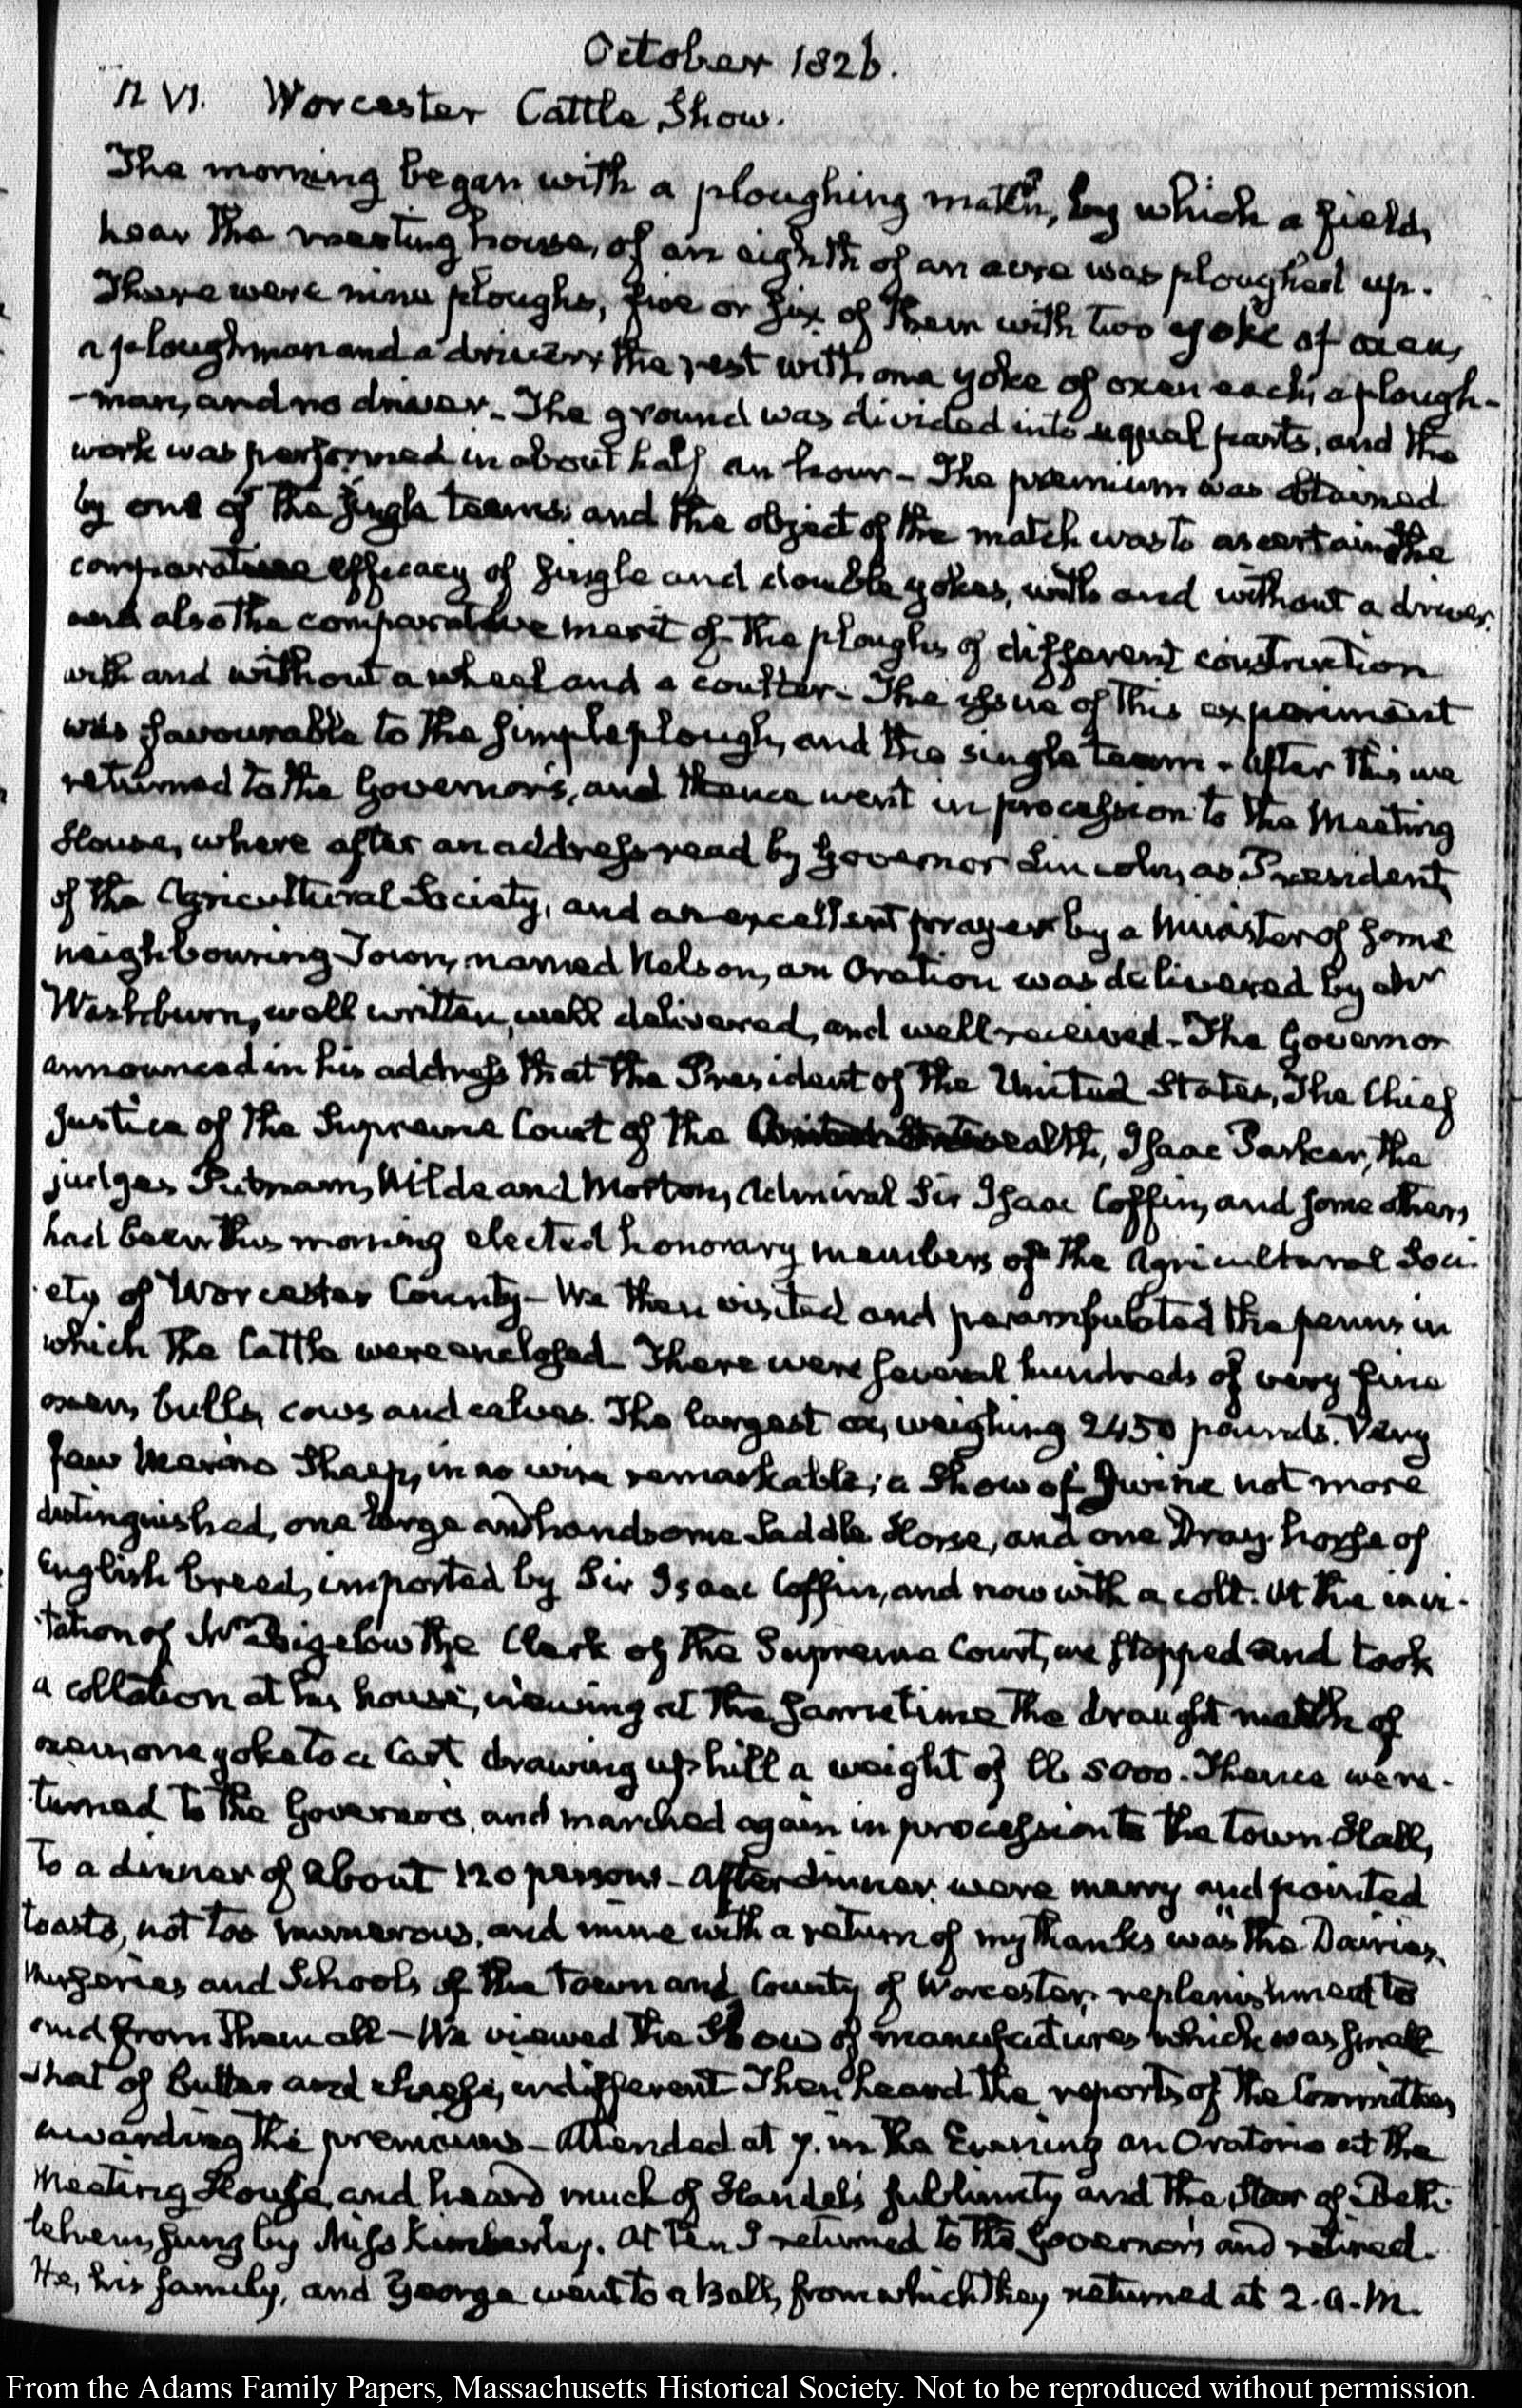 October 1826.
VI. Worcester Cattle Show.
The morning began with a ploughing match, by which a field,
near the meeting house, of an eighth of an acre was ploughed up.
There were nine ploughs, five or six of them with two yoke of oxen,
a ploughman and a driver, the rest with one yoke of oxen each, a plough-
-man, and no driver. The ground was divided into equal parts, and the
work was performed in about half an hour - The premium was obtained
by one of the single teams: and the object of the match was to ascertain the
comparative efficacy of single and double yokes, with and without a driver.
and also the comparative merit of the ploughs of different construction
with and without a wheel and a coulter - The issue of this experiment
was favourable to the simple plough, and the single team. After this we
returned to the Governor's, and thence went in procession to the Meeting
House, where after an address read by Governor Lincoln, as President,
of the Agricultural Society, and an excellent prayer by a Minister of some
neighbouring Town, named Nelson, an Oration was delivered by Mr
Washburn, well written, well delivered, and well received - The Governor
announced in his address that the President of the United States, The Chief
Justice of the Supreme Court of the Commonwealth, Isaac Parker, the
judges Putnam, Wilde and Morton, Admiral Sir Isaac Coffin, and some others,
had been this morning elected honorary members of the Agricultural Soci-
ety of Worcester County - We then visited and perambulated the penns in
which the Cattle were enclosed. There were several hundreds of very fine
oxen, bulls, cows and calves. The largest ox, weighing 2450 pounds. Very
few Merino Sheep, in no wise remarkable; a Show of Swine not more
distinguished, one large and handsome Saddle Horse, and one Dray-horse of
English breed, imported by Sir Isaac Coffin, and now with a colt. At the invi-
tation of Mr Bigelow the Clerk of the Supreme Court, we stopped and took
a collation at his house, viewing at the same time the draught match of
oxen, one yoke to a Cart drawing up hill a weight of lb 5000. Thence we re-
turned to the Governor's, and marched again in procession to the Town Hall,
to a dinner of about 120 persons - After dinner were merry and pointed
toasts, not too numerous, and mine with a return of my thanks was "the Dairies,
Nurseries and Schools of the Town and County of Worcester, replenishment to
and from them all - We viewed the Show of manufactures which was small
that of butter and cheese, indifferent Then heard the reports of the Committees
awarding the premiums - Attended at 7. in the Evening an Oratorio at the
Meeting House, and heard much of Handel's sublimity and the Star of Beth-
lehem, sung by Miss Kimberley. At ten I returned to the Governor's and retired.
He, his family, and George went to a Ball, from which they returned at 2. A.M.
From the Adams Family Papers, Massachusetts Historical Society. Not to be reproduced without permission.